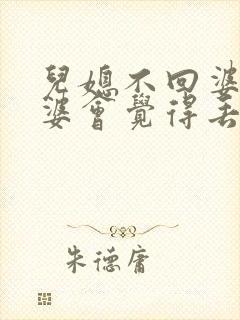 兒媳不回婆
婆會覺得丟
朱德庸